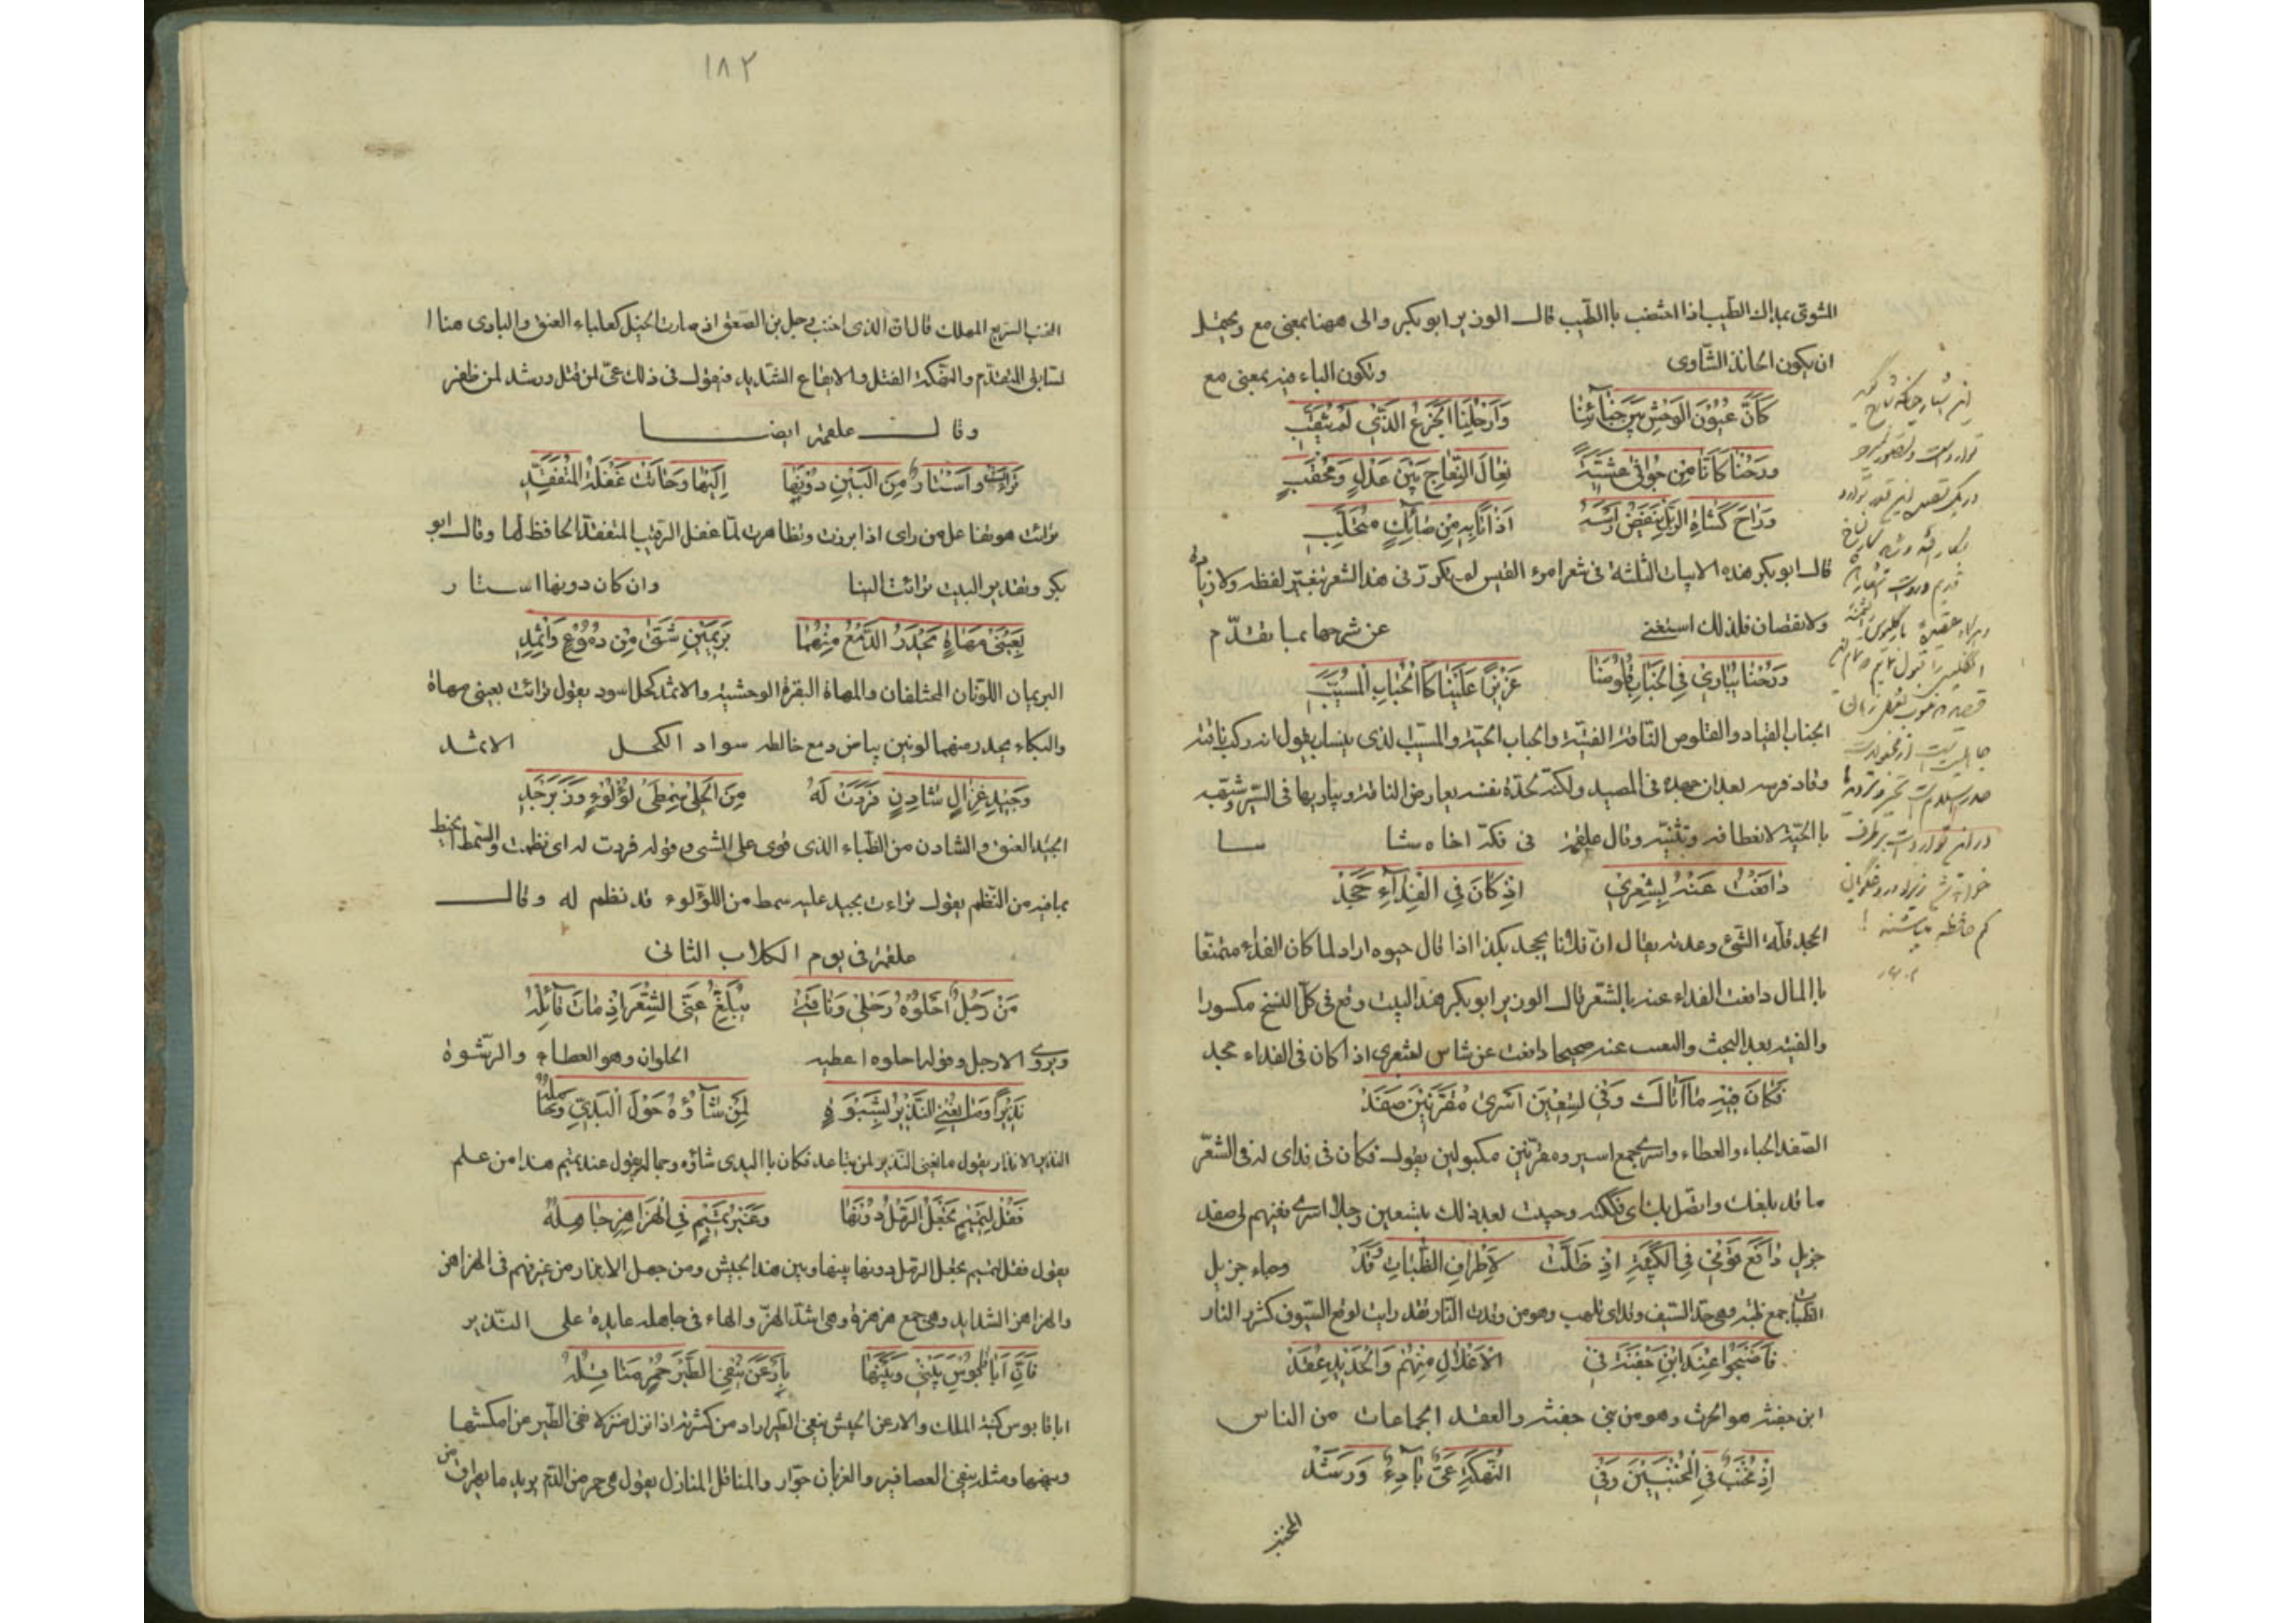 الشوق بمدلك الطيب اذا اختضب بالطيب قال الوزير ابو بكر والى ههنا بمعنى مع ويحتمل
ان يكون الحانذ الشاوى وتكون الباء فيه بمعنى مع
كَأَنَّ عُيُونَ الوَحْشِ بَيْنَ خِبَآئِنَا وَأَرْحُلِنَا الجَزْعُ الَّذِي لَمْ يُثَقَّبِ
ورحنا كَأَنَّا مِن جُوَاثَى عَشِيَّةً نِعَالَ النِّعَاجِ بَيْنَ عَدْلٍ وَمُحْقَبِ
وَرَاحَ كَشَاةِ الرَّبْلِ يَنْفُضُ رَأْسَهُ اَذَاةً بِهِ مِنْ صَائِكٍ مُتَحَلِّبِ
قال ابو بكر هذه الابيات الثلثة فى شعر امرء القيس لم يكرر فى هذا الشعر بتغير لفظه ولا زيادة
ولا نقصان فلذلك استغنى عن شرحها بما تقدم
وَرُحْنَا يُبَارِى فِى الجِنَابِ قَلُوصَنَا عَزِيزًا عَلَيْنَا كَالْحُبَابِ الْمُسَيَّبِ
الجناب القياد والقلوص الناقة الفتية والحباب الحية والمسيب الذى ينساب يقول انه ركب ناقته
وقاد فرسه بعد ان جهده فى الصيد ولكنه لحدة نفسه يعارض الناقة ويباريها فى السير وشبهه
بالحية لانعطافه وتثنيه وقال علقمة فى فكه اخاه شاسا
دَافَعْتُ عَنْهُ بِشِعْرِي اِذْ كَانَ فِي الفِدَآءِ جَحَدْ
الجحد قلة الشئ وعدمه يقال ان فلانا لجحد نكد اذا قال خيره اراد لما كان الفداء ممتنعا
بالمال دافعت الفداء عنه بالشعر قال الوزير ابو بكر هذا البيت وقع فى كل النسخ مكسورا
والفيته بعد البحث والتعب عنه صحيحا دافعت عن شاس بشعرى اذ كان فى الفداء جحد
فَكَانَ فِيْهِ مَا أَتَاكَ وَفِى تِسْعِيْنَ اَسْرَى مُقْرَنِيْنَ صَفَدْ
الصفد الحباء والعطاء واسرى جمع اسير ومقرنين مكبولين يقول فكان فى نداى له فى الشعر
ما قد بلغك واتصل بك اى فككته وحبيت بعد ذلك بتسعين رجلا اسرى فغنيهم لى صفد
جزيل دَافَعَ قَوْمِى فِي الْكَتِيْبَةِ اِذْ طَارَ لِأَطْرَافِ الظُّبَاتِ وَقَدْ وحباء جزيل
الظبات جمع ظبة وهى حد السيف وقد اى تلهب وهو من وقدت النار فقد رايت لوقع السيوف كشرر النار
فَأَصْبَحُوا عِنْدَ ابْنِ جَفْنَةَ فِى الْاَغْلَالِ مِنْهُمْ وَالْحَدِيْدِ عُقَدْ
ابن جفنة هو الحرث وهو من بنى جفنة والعقد الجماعات من الناس
اِذْ مُخْنَبٌ فِي الْمُخْنَبِيْنَ وَفِى النَّهْكَةِ غَىٌّ بَادِئٌ وَرَشَدْ
المخنب
١٨٢
المخنب السريع المهلك قال ان الذى اخنب رجل بن الصعق اذ صارت الخيل كعلباء العنق والبادى هنا ا
لسابق المتقدم والنهكة القتل والايقاع الشديد فيقول فى ذلك غىّ لمن قتل ورشد لمن ظفر
وقال علقمة ايضا
تَرَاءَتْ وَاَسْتَارٌ مِنَ الْبَيْتِ دُوْنَهَا اِلَيْنَا وَحَانَتْ غَفْلَةُ الْمُتَفَقِّدِ
تراءت هو تفاعل من راى اذا برزت وتظاهرت لما غفل الرقيب المتفقد الحافظ لها وقال ابو
بكر وتقدير البيت تراءت الينا وان كان دونها استار
بِعَيْنَىْ مَهَاةٍ يَحْدُرُ الدَّمْعُ مِنْهُمَا بَرِيْمَيْنِ شَتَّى مِنْ دُمُوْعٍ وَاِثْمِدِ
البريمان اللونان المختلفان والمهاة البقرة الوحشية والاثمد كحل اسود يقول تراءت بعينى مهاة
والبكاء يحدر منهما لونين بياض دمع خالطه سواد الكحل الاثمد
وَجِيْدِ غَزَالٍ شَادِنٍ فَرَدَتْ لَهُ مِنَ الْحَلْىِ سِمْطَىْ لُؤْلُؤٍ وَزَبَرْجَدِ
الجيد العنق والشادن من الظباء الذى قوى على المشى وقوله فردت له اى نظمت والسمط الخيط
بما فيه من النظم يقول تراءت بجيد عليه سمط من اللؤلوء قد نظم له وقال
علقمة فى يوم الكلاب الثانى
مَنْ رَجُلٌ اَحْلُوْهُ رَحْلِى وَنَاقَتِى يُبَلِّغُ عَنِّى الشِّعْرَ اِذْ مَاتَ قَائِلُهْ
ويروى الا رجل وقوله احلوه اعطيه الحلوان وهو العطاء والرشوة
نَذِيْرًا وَمَا يُغْنِى النَّذِيْرُ بِشَبْوَةٍ لِمَنْ شَآؤُهُ حَوْلَ الْبَدِىِّ وَجَامِلُهْ
النذير الانذار يقول ما يغنى النذير لمن تباعد فكان بالبدى شاؤه وجماله يقول عند تميم هذا من علم
فَقُلْ لِتَمِيْمٍ تَجْعَلُ الرَّمْلَ دُوْنَهَا وَغَيْرُ تَمِيْمٍ فِى الْهَزَاهِزِ جَاهِلُهْ
يقول فقل لتميم تجعل الرمل دونها بينها وبين هذا الجيش ومن جهل الانذار من غيرهم فى الهزاهز
والهزاهز الشدايد وهى جمع هزهزة وهى اشد الهز والهاء فى جاهله عايدة على النذير
فَاِنَّ اَبَا قَابُوْسَ بَيْنِى وَبَيْنَهَا بِاَرْعَنَ يَنْفِى الطَّيْرَ حُمْرٍ مَنَاقِلُهْ
ابا قابوس كنية الملك والارعن الجيش ينفى الطير اراد من كثرته اذا نزل منزلا نفى الطير من امكنتها
وبيضها ومثله ينفى العصافير والغربان جرار والمناقل المنازل يقول هى حمر من الدم يريد ما يهراق من